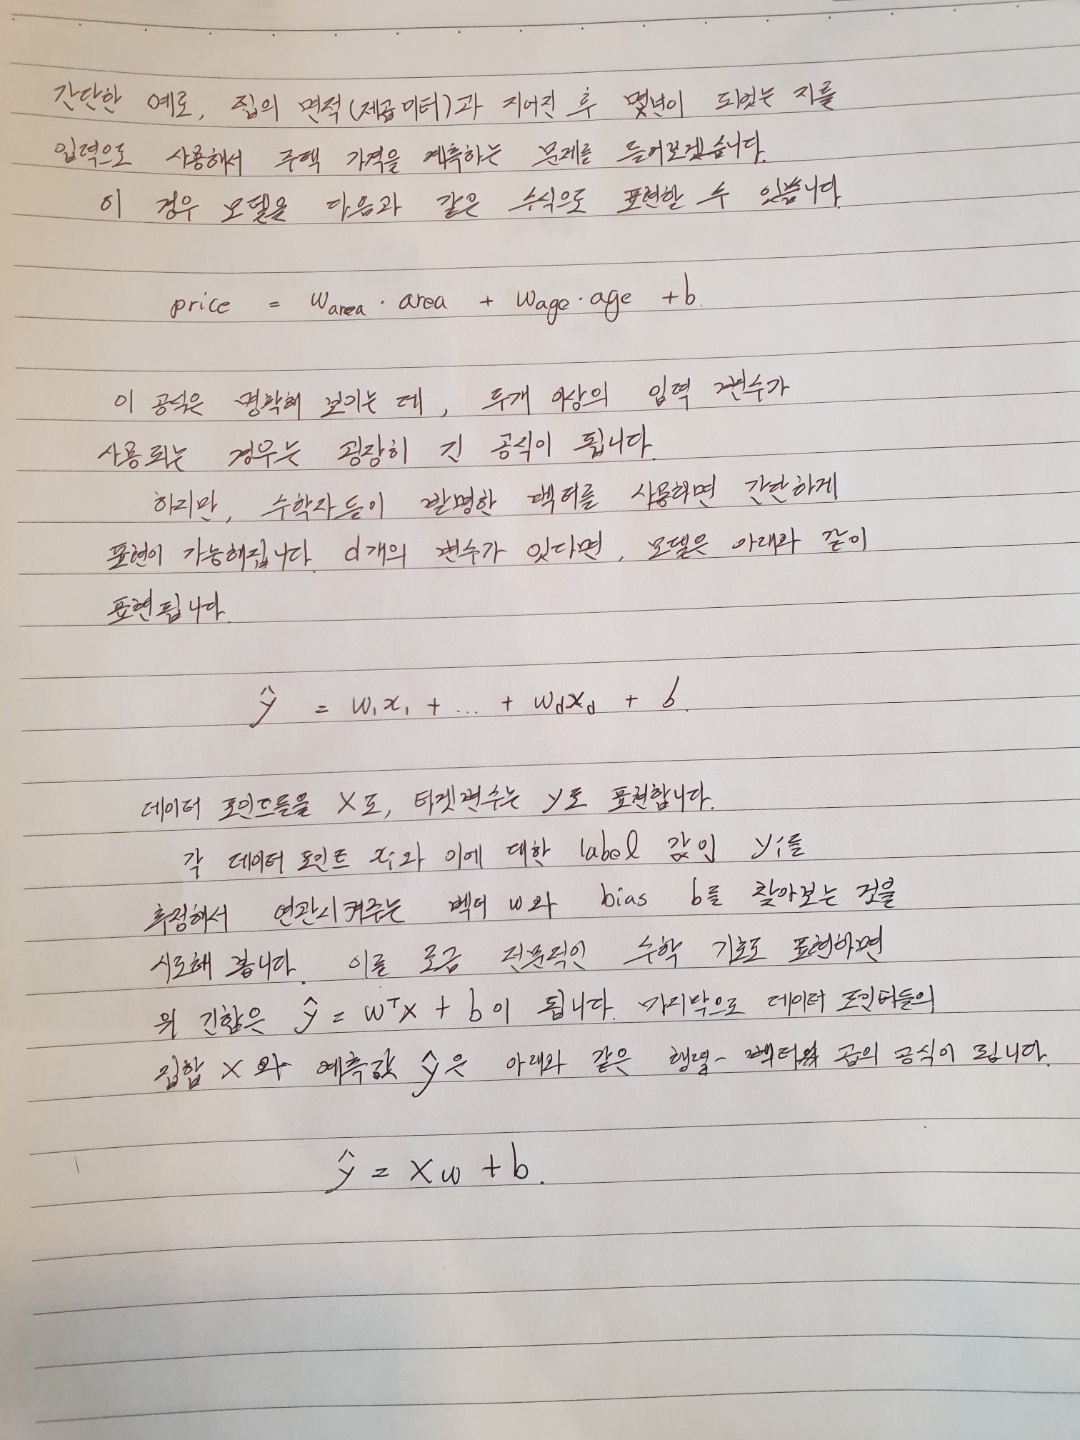 간단한 예로, 집의 면적(제곱미터)과 지어진 후 몇년이 되었는 지를
입력으로 사용해서 주택 가격을 예측하는 문제를 들어보겠습니다.
이 경우 모델을 다음과 같은 수식으로 표현할 수 있습니다.
price = w_area · area + w_age · age + b.
이 공식은 명확해 보이는 데, 두개 이상의 입력 변수가
사용되는 경우는 굉장히 긴 공식이 됩니다.
하지만, 수학자들이 발명한 벡터를 사용하면 간단하게
표현이 가능해집니다. d개의 변수가 있다면, 모델은 아래와 같이
표현됩니다.
ŷ = w₁x₁ + ... + w_d x_d + b.
데이터 포인트들을 X로, 타겟변수는 y로 표현합니다.
각 데이터 포인트 xᵢ와 이에 대한 label 값인 yᵢ를
추정해서 연관시켜주는 벡터 w와 bias b를 찾아보는 것을
시도해 봅니다. 이를 조금 전문적인 수학 기호로 표현하면
위 긴합은 ŷ = wᵀx + b이 됩니다. 마지막으로 데이터 포인터들의
집합 X와 예측값 ŷ은 아래와 같은 행렬-벡터 곱의 공식이 됩니다.
ŷ = Xw + b.